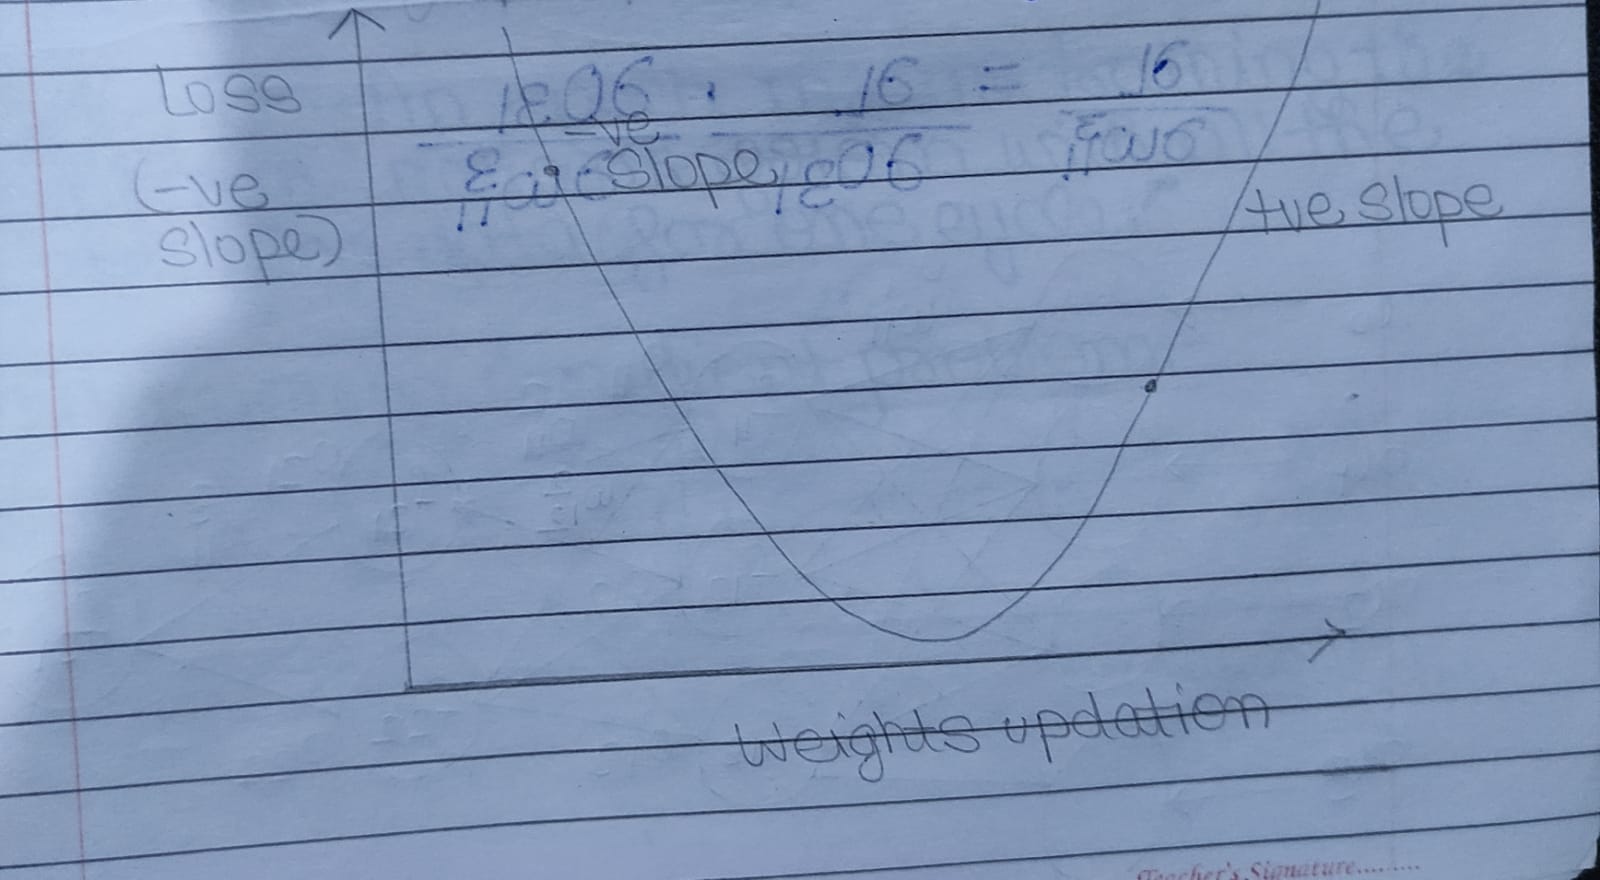 Loss
(-ve
slope)
-ve
slope
+ve slope
Weights updation
Teacher's Signature.........